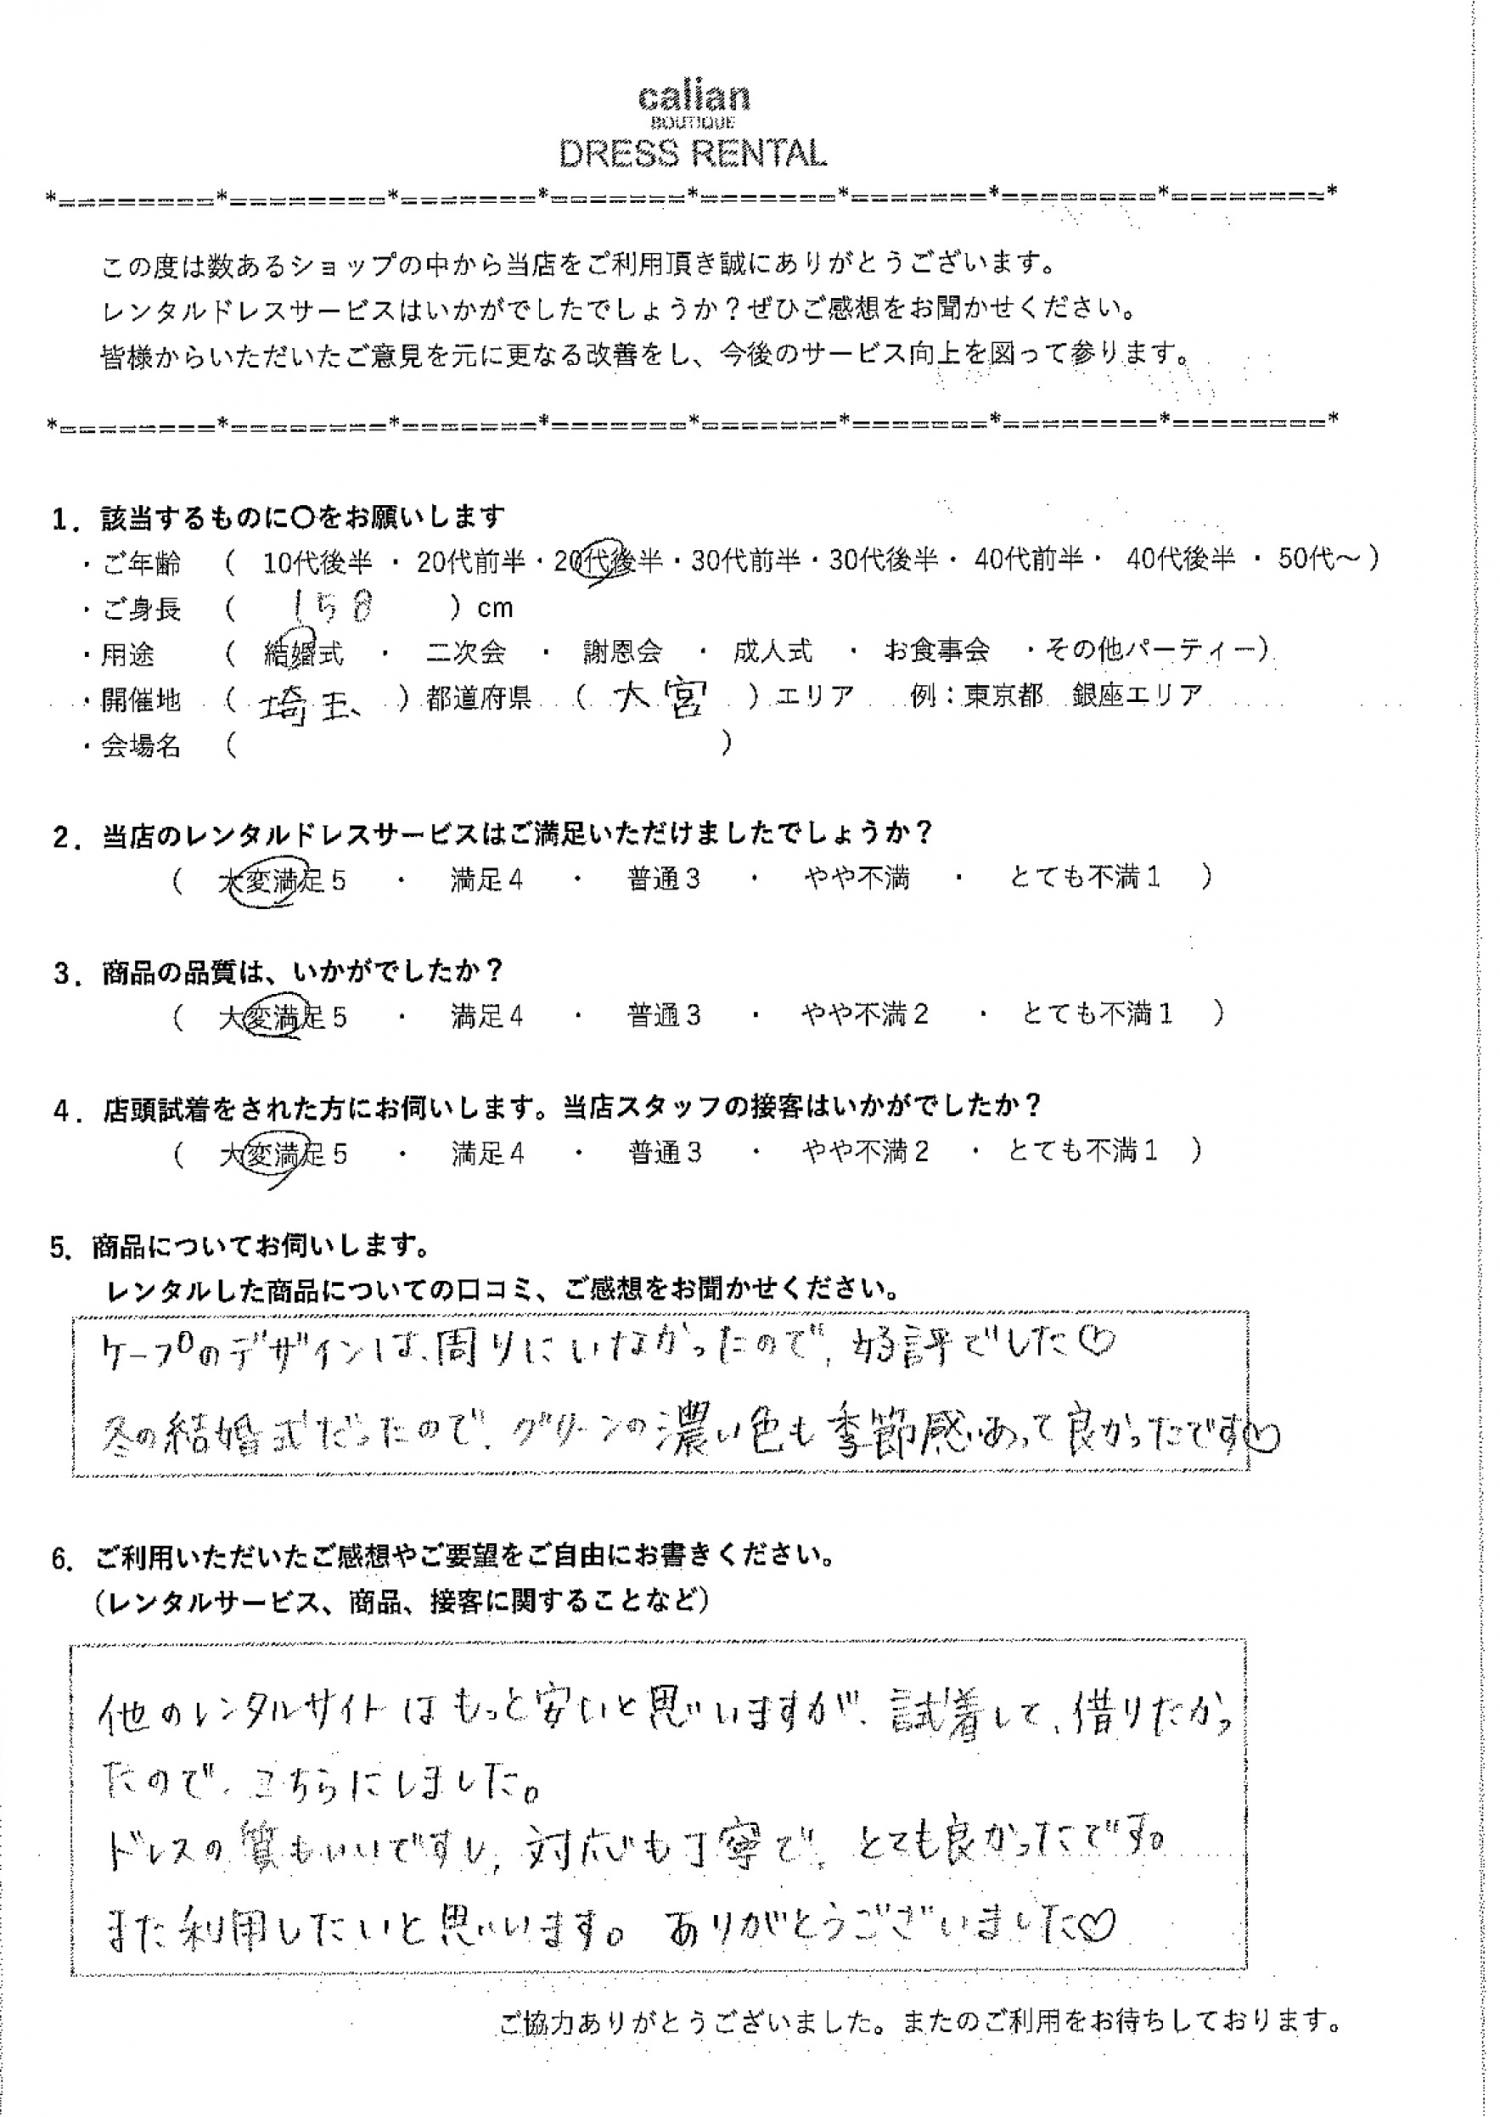 calian
BOUTIQUE
DRESS RENTAL
*========*========*=======*=======*=======*=======*========*========*
この度は数あるショップの中から当店をご利用頂き誠にありがとうございます。
レンタルドレスサービスはいかがでしたでしょうか？ぜひご感想をお聞かせください。
皆様からいただいたご意見を元に更なる改善をし、今後のサービス向上を図って参ります。
*========*========*=======*=======*=======*=======*========*========*
1．該当するものに〇をお願いします
・ご年齢　（　10代後半 ・ 20代前半・20代後半・30代前半・30代後半・ 40代前半・ 40代後半 ・ 50代～）
・ご身長　（　158　）cm
・用途　（　結婚式　・　二次会　・　謝恩会　・ 成人式　・ お食事会　・その他パーティー）
・開催地　（ 埼玉 ）都道府県　（ 大宮 ）エリア　例：東京都　銀座エリア
・会場名　（　　　　）
2．当店のレンタルドレスサービスはご満足いただけましたでしょうか？
（　大変満足５　・　満足４　・　普通３　・　やや不満　・　とても不満１　）
3．商品の品質は、いかがでしたか？
（　大変満足５　・　満足４　・　普通３　・　やや不満２　・　とても不満１　）
4．店頭試着をされた方にお伺いします。当店スタッフの接客はいかがでしたか？
（　大変満足５　・　満足４　・　普通３　・　やや不満２　・ とても不満１　）
5．商品についてお伺いします。
レンタルした商品についての口コミ、ご感想をお聞かせください。
ケープのデザインは、周りにいなかったので、好評でした♡
冬の結婚式だったので、グリーンの濃い色も季節感あって良かったです♡
6．ご利用いただいたご感想やご要望をご自由にお書きください。
（レンタルサービス、商品、接客に関することなど）
他のレンタルサイトはもっと安いと思いますが、試着して、借りたかっ
たので、こちらにしました。
ドレスの質もいいですし、対応も丁寧で、とても良かったです。
また利用したいと思います。ありがとうございました♡
ご協力ありがとうございました。またのご利用をお待ちしております。